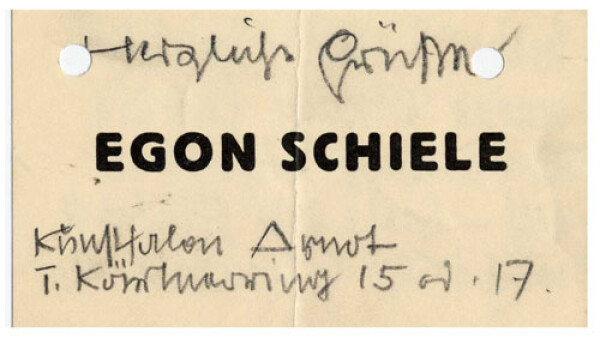 Herzliche Grüße
EGON SCHIELE
Kunstsalon Arnot
I. Kärntnerring 15 od. 17.